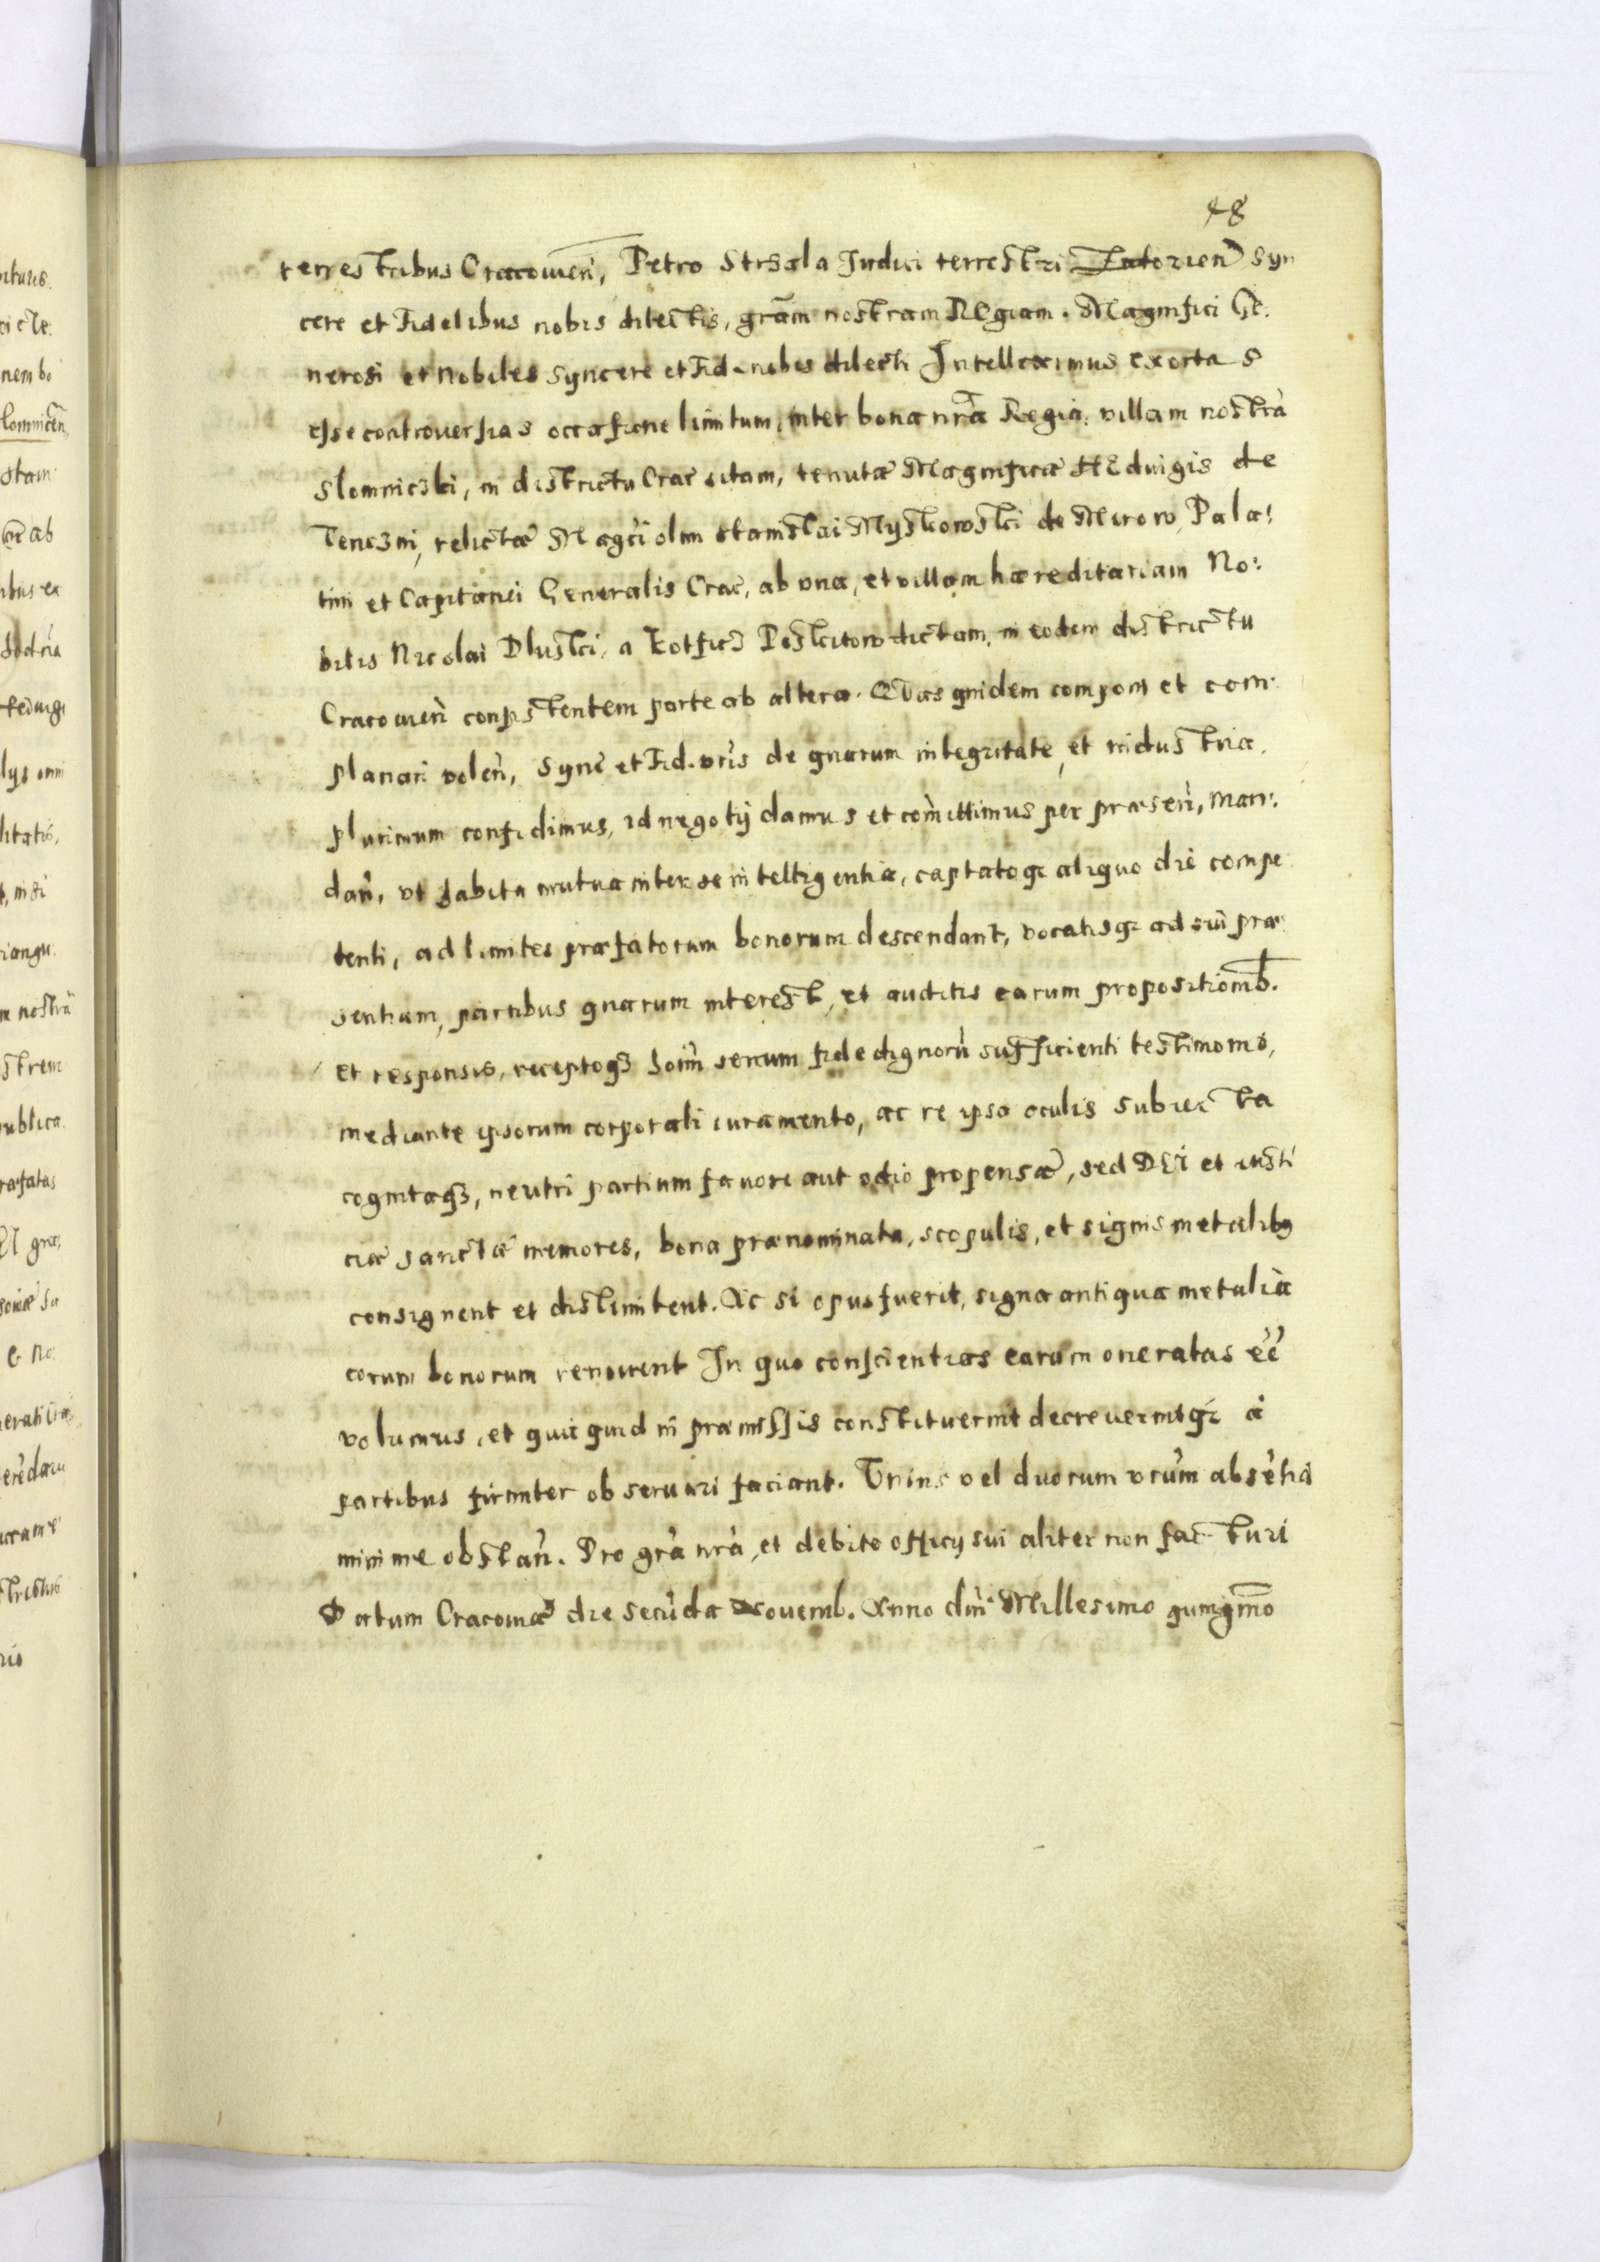 48
terrestribus Cracovien̄, Petro Strzala Iudici terrestri Zatorien̄ Syn
cere et Fidelibus nobis dilectis, grām nostram REgiam. Magnifici Ge:
nerosi et Nobiles Syncere et Fid. nobis dilecti Intelleximus exortas
esse controversias occasione limitum, inter bona nrā Regia, villam nostrā
Slomniczki, in districtu Crac̄ sitam, tenutæ Magnificæ HEduigis de
Tenczin, relictæ Magc̄i olim Stanislai Myskowski de Mirow, Pala:
tini et Capitanei Generalis Crac̄, ab vna, et villam hæreditariam No:
bilis Nicolai Dluski, a dictam, in eodem districtu
Cracovien̄ consistentem parte ab altera. QVas quidem componi et com:
planari volen̄, Sync̄ et Fid. vrīs de quarum integritate, et industria
plurimum confidimus, id negotij damus et com̄ittimus per præsen̄, man:
dan̄, vt habita mutua inter se intelligentia, captatoq3 aliquo die compe
tenti, ad limites præfatorum bonorum descendant, vocatisq3 ad sui præ
sentiam, partibus quarum interest, et auditis earum propositionib.
et responsis, receptoq3 hoīm senum fidedignorū sufficienti testimonio,
mediante ipsorum corporali iuramento, ac re ipsa oculis subiecta
cognitaq3, neutri partium favore aut odio propensæ, sed DEI et iusti
ciæ sanctæ memores, bona prænominata, scopulis, et signis metalibus
consignent et dislimitent. Ac si opus fuerit, signa antiqua metalia
eorum bonorum renovent In quo conscientias earum oneratas eē
volumus, et quicquid in præmissis constituerint decreverintq3 a
partibus firmiter observari faciant. Vnius vel duorum vrūm absētia
minime obstan̄. Pro grā nrā, et debito officij sui aliter non facturi
Datum Cracoviæ die secūda Novemb. Anno dnī Millesimo quingmo